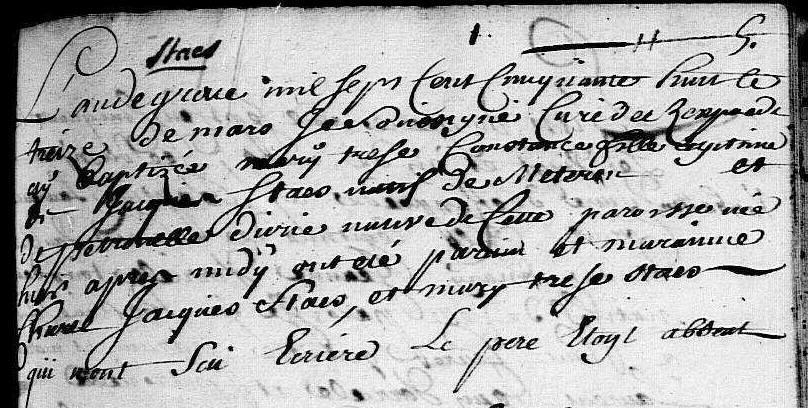 Staes
L'an de grace mil sept cent cinquante huit le
treize de mars je soussigné Curé de Rexpoede
ay baptizée mary trese Constance fille legitime
de Jacques Staes natif de Meteren et
de petronelle native de Cette paroisse née
hier apres midÿ ont été parain et maraine
Jacques Staes, et mary trese Staes
qui n'ont sçu Ecrire Le pere Etoyt absent